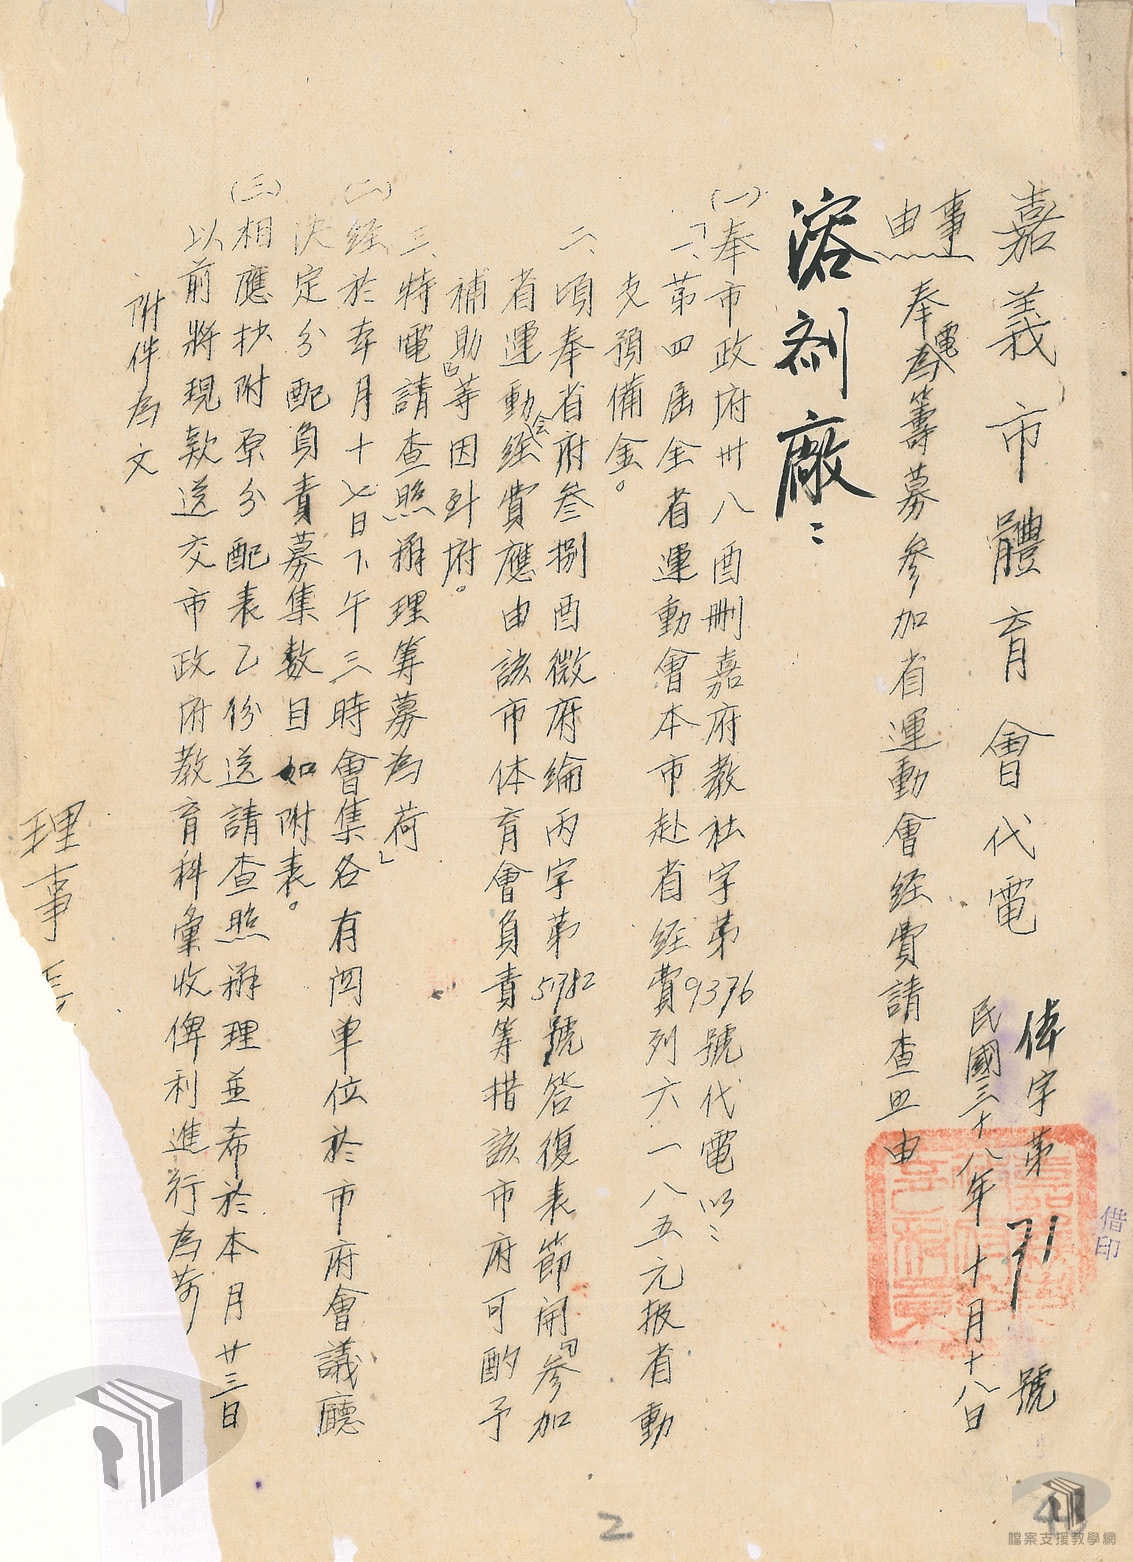 嘉義市體育會代電
体字第71號
民國三十八年十月十八日
借印
事由
奉電為籌募參加省運動會经費請查照由
溶剂廠：
(一)奉市政府卅八酉刪嘉府教社字第9376號代電以：
「一、第四屆全省運動會本市赴省经費列六一八五元报省動
支預備金。
二、頃奉省府叁捌酉微府綸丙字第5782號答復表節開「參加
省運動会经費應由該市体育會負責筹措該市府可酌予
補助」等因到府。
三、特電請查照辦理筹募為荷」
(二)经於本月十七日下午三時會集各有関单位於市府會議廳
決定分配負責募集数目如附表。
(三)相應抄附原分配表乙份送請查照辦理並希於本月廿三日
以前將現款送交市政府教育科彙收俾利進行為荷
附件為文
理事長
2
檔案支援教學網